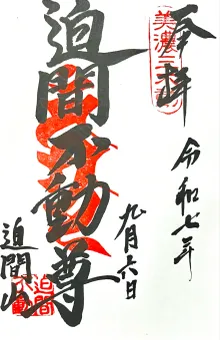 奉拝
美濃三不動
令和七年
九月六日
迫間不動尊
迫間山
迫間不動